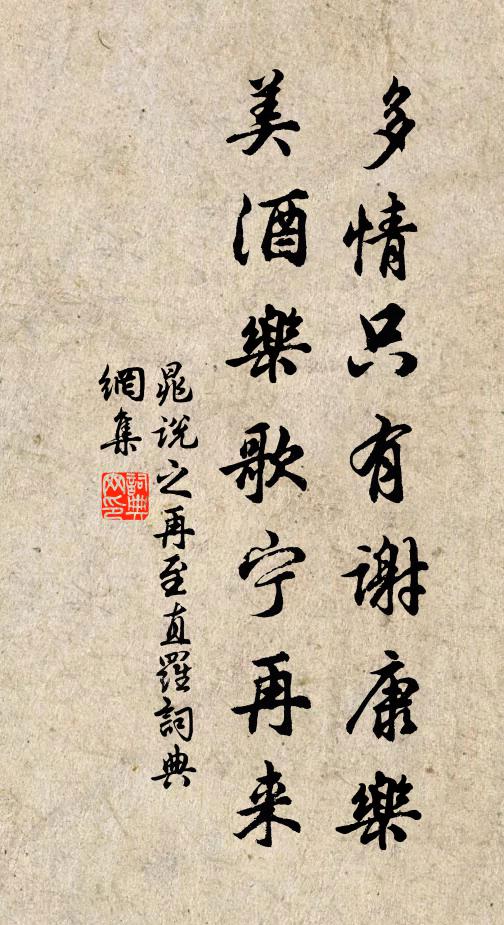 多情只有谢康樂
美酒樂歌宁再来
晁说之再至直羅詞典
網集
詞典
网印